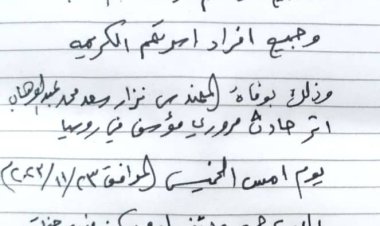 وجميع افراد اسرتكم الكريمه
وذلك بوفاة المهندس نزار سعد محمد عبدالوهاب
اثر حادث مروري مؤسف في روسيا
يوم امس الخميس الموافق ٢٣/١١/٢٠٢٣م